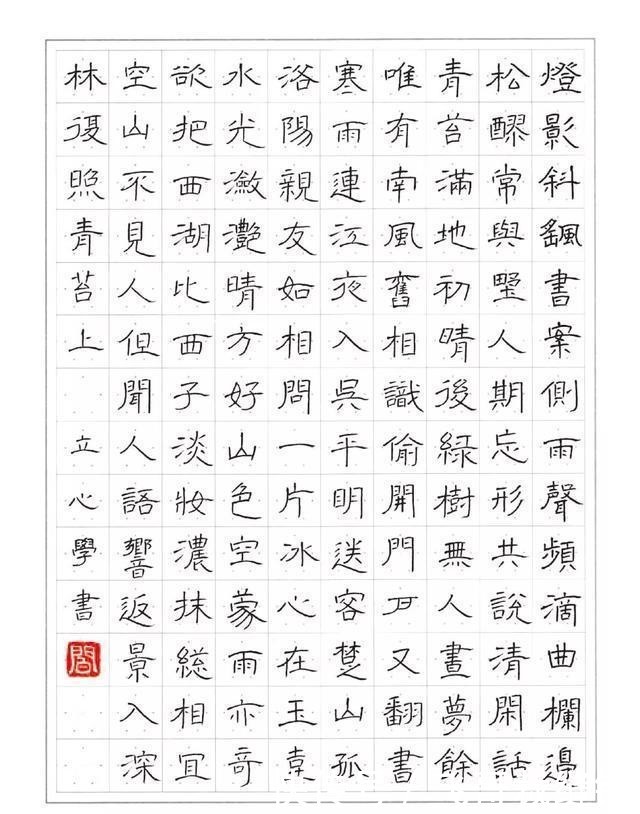 燈影斜颻書案側雨聲頻滴曲欄邊
松醪常與野人期忘形共說清閑話
青苔滿地初晴後綠樹無人晝夢餘
唯有南風舊相識偷開門戶又翻書
寒雨連江夜入吳平明送客楚山孤
洛陽親友如相問一片冰心在玉壺
水光瀲灩晴方好山色空蒙雨亦奇
欲把西湖比西子淡妝濃抹總相宜
空山不見人但聞人語響返景入深
林復照青苔上 立心學書